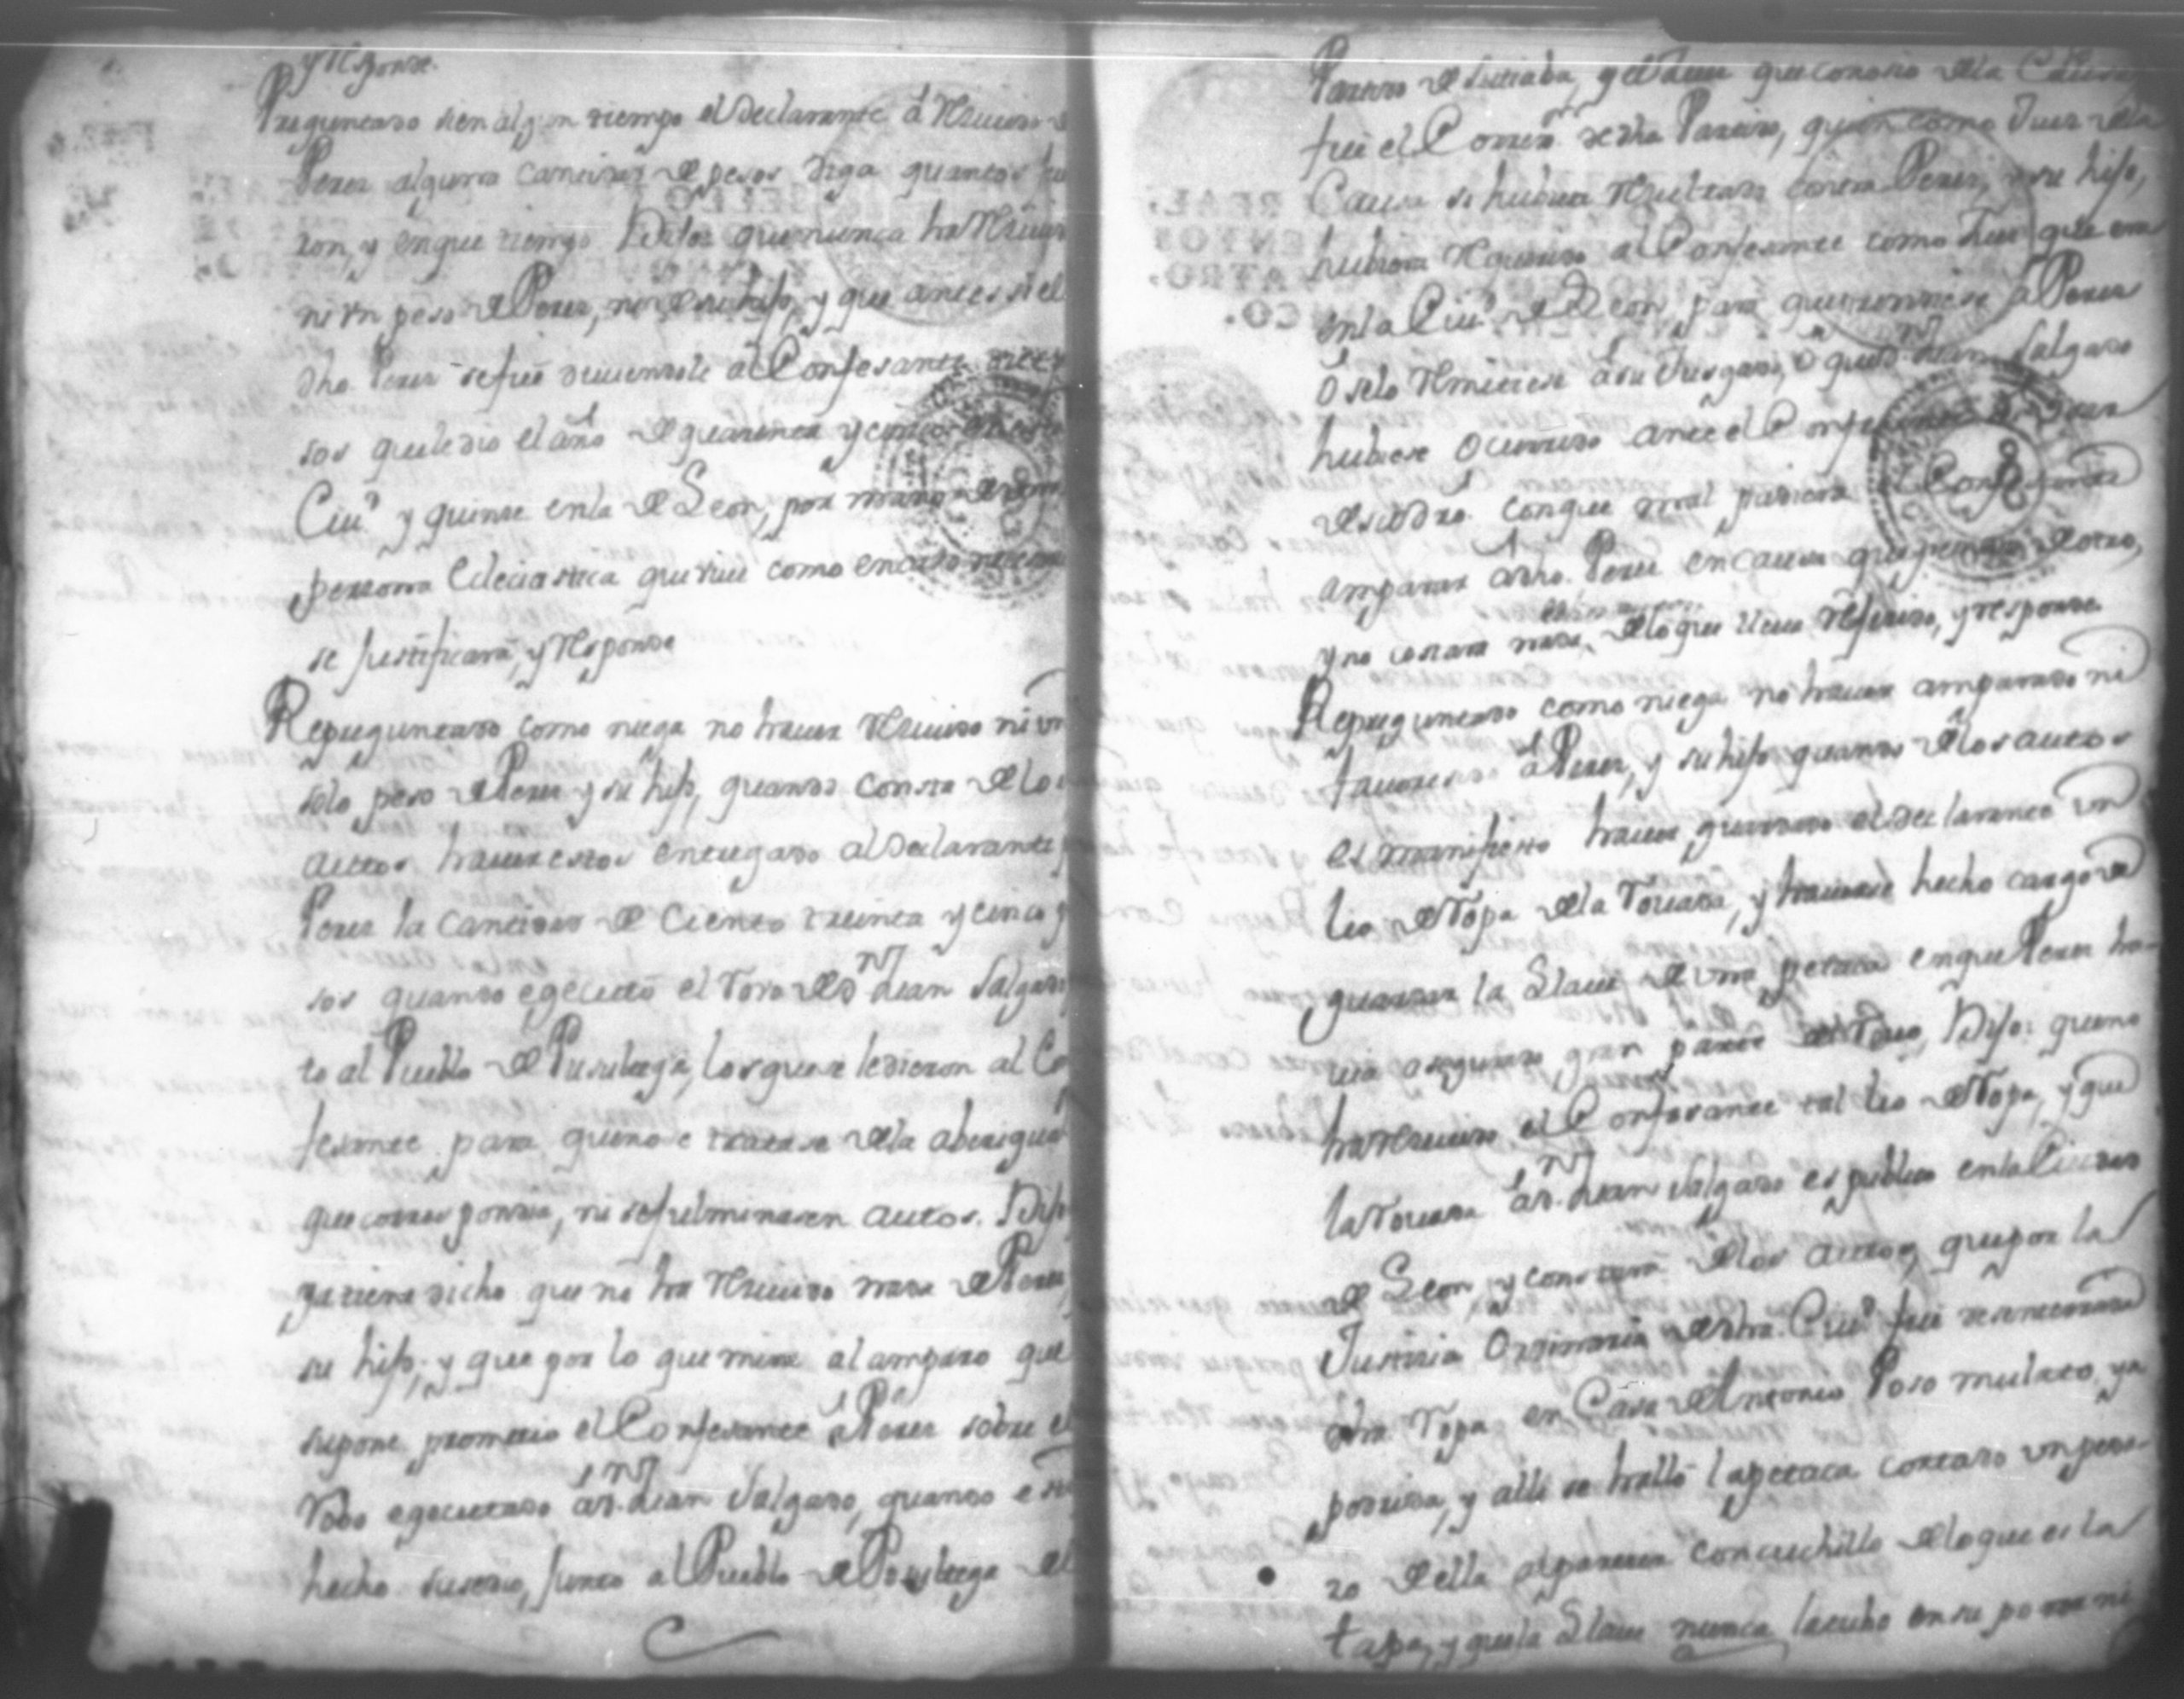 y responde
Preguntado si en algun tiempo el declarante á recivido de
Perez alguna cantidad de pesos diga quantos fue
ron, y en que tiempo Dijo: que nunca ha recivido
ni vn peso de Perez, ni de su hijo, y que antes si el
dho Perez se fue deviendole al Confesante
sos que le dio el año de quarenta y cinco
Ciud. y quinse en la de Leon, por mano de
persona Eclesiastica que vive como en caso necesario
se justificará, y responde
Repreguntado como niega no haver recivido ni vn
solo peso de Perez y su hijo, quando consta de los
autos haver estos entregado al declarante
Perez la cantidad de ciento treinta y cinco p
sos quando egecutó el rovo de Dn Juan Salgado
to al Pueblo de Pusultega, los que le dieron al Con
fesante para que no se tratase de la aberigua
que correspondia, ni se fulminasen autos. Dijo
ya tiene dicho que no ha recivido nada de Perez
su hijo; y que por lo que mira al amparo que
supone prometio el Confesante á Perez sobre el
robo egecutado á Dn Juan Salgado, quando este
hecho susedio, junto al Pueblo de Posultega del
Partido de Sutiaba, y el Juez que conosio de la Causa
fue el Correxor de dho Partido, quien como Juez de la
Causa si huviera resultado contra Perez, y su hijo,
huviera requerido al Confesante como Juez que era
en la Ciud. de Leon, para que prendiese á Perez
ó se lo remitiese á su Jusgado, ó que Dn Juan Salgado
hubiese ocurrido ante el Confesante
con que mal pudiera el Confesante
amparar á dho. Perez en causa que pendia de otro,
y no constara nada de lo que lleva referido, y responde
Repreguntado como niega no haver amparado ni
favoresido á Perez, y su hijo quando de los autos
es manifiesto haver guardado el declarante vn
lio de ropa de la rovada, y haverse hecho cargo de
guardar la Llave de vna petaca en que Perez ha-
via asegurado gran parte del rovo, Dijo: que no
ha recivido el Confesante tal lio de ropa, y que
la rovada á Dn Juan Salgado es publico en la Ciudad
de Leon, y constará de los autos, que por la
Justicia Ordinaria de dha. Ciud. fue desenterrada
dha. ropa en Casa de Antonio Poso mulato, ya
podrida, y alli se halló la petaca cortado vn peda-
zo de ella al parecer con cuchillo de lo que es la
tapa, y que la Llave nunca la tubo en su poder ni